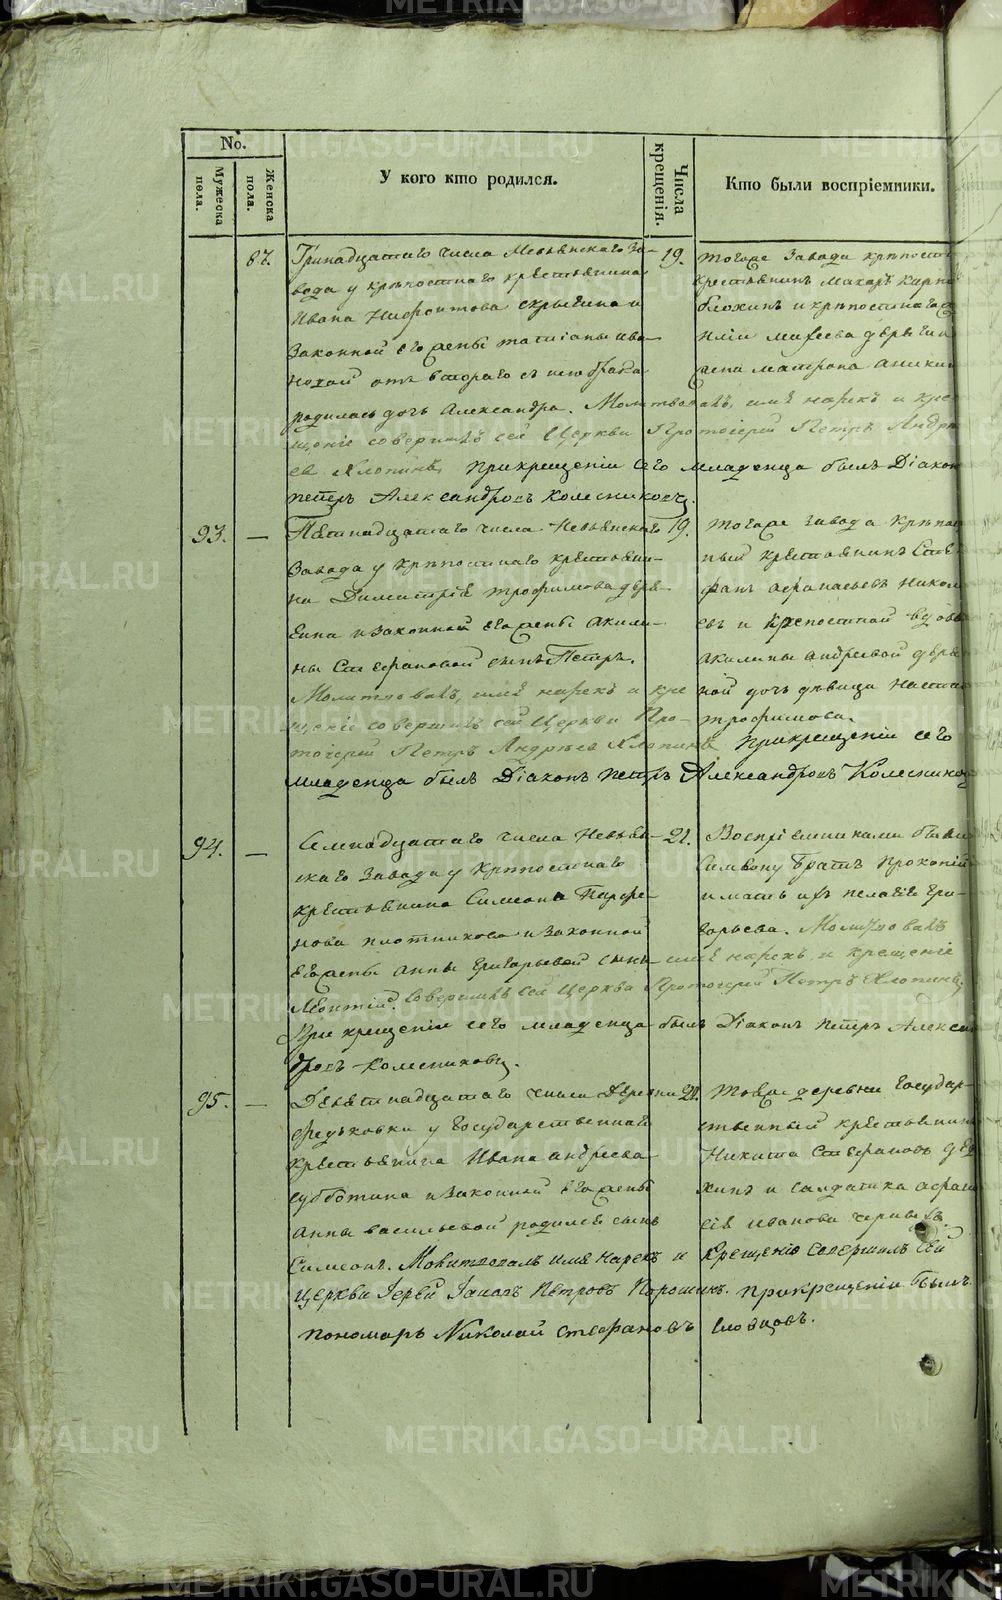 No.
Мужеска пола.
Женска пола.
У кого кто родился.
Числа крещенія.
Кто были воспріемники.
87.
Тринадцатаго числа Невьянскаго За-
вода у крѣпостнаго крестьянина
Ивана Нифонтова
законной его жены татианы ива-
новой отъ втораго съ нею брака
родилась дочь Александра. Молитвовалъ, имя нарекъ и кре-
щеніе совершилъ сей Церкви Протоіерей Петръ Андре
ев Хлопинъ, При крещеніи сего младенца былъ Діакон
петръ Александровъ Колесниковъ.
19.
тогоже Завода крѣпост
крестьянинъ Макаръ Карп
и крѣпостнаго
жена матрона аники
93. —
Пятнадцатаго числа Невьянскаго
Завода у крѣпостнаго крестьяни-
на Димитрія трофимова
и законной его жены Акили-
ны Стефановой сынъ Петръ.
Молитвовалъ, имя нарекъ и кре
щеніе совершилъ сей Церкви Про-
тоіерей Петръ Андреев Хлопинъ При крещеніи сего
младенца былъ Діаконъ петръ Александровъ Колесников
19.
тогоже завода крѣпос
ный крестьянинъ Сте
фанъ афанасьевъ Никол
евъ и крепостной вдовы
акилины андреевой
ной дочь дѣвица Настас
трофимова.
94. —
Семнадцатаго числа Невьян-
скаго Завода у крѣпостнаго
крестьянина Симеона Парфе-
нова плотникова и законной
его жены анны григорьевой сынъ
Леонтій. имя нарекъ и крещеніе
Совершилъ сей Церкви Протоіерей Петръ Хлопинъ,
При крещеніи сего младенца былъ Діаконъ петръ Алексан
дровъ Колесниковъ.
21.
Воспріемниками были
братъ Прокопій
и мать ихъ пелагія гри-
горьева. Молитвовалъ
95. —
Девятнадцатаго числа Деревни
федьковки у Государственнаго
крестьянина Ивана андреева
субботина и законной его жены
анны васильевой родился сынъ
Симеонъ. Молитвовалъ имя нарекъ и Крещеніе совершилъ сей
Церкви Іерей Іаковъ Петровъ Порошинъ. При крещеніи былъ
пономарь Николай стефановъ Словцовъ.
21.
тояже деревни Государ-
ственный крестьянин
Никита Стефановъ
и салдатка афана
сія иванова черныхъ.
METRIKI.GASO-URAL.RU